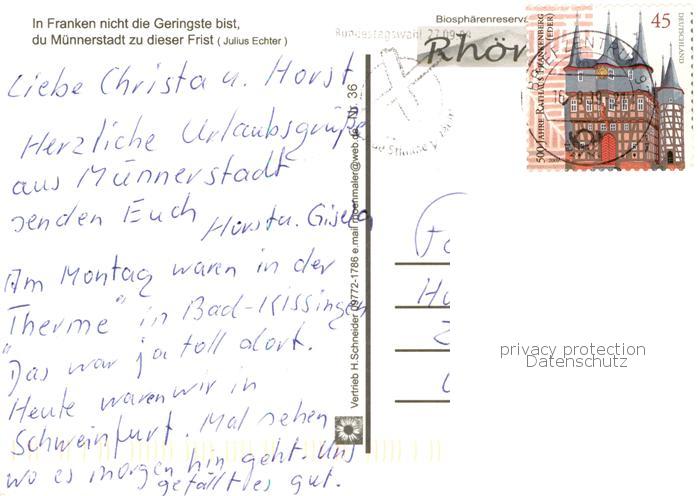 In Franken nicht die Geringste bist,
du Münnerstadt zu dieser Frist ( Julius Echter )
Liebe Christa u. Horst
Herzliche Urlaubsgrüße
aus Münnerstadt
senden Euch Horst u. Gisela
Am Montag waren in der
"Therme" in Bad-Kissingen
Das war ja toll dort.
Heute waren wir in
Schweinfurt. Mal sehen
wo es morgen hin geht. Uns
gefällt es gut.
Vertrieb H.Schneider 09772-1786 e.mail @web.de Nr. 36
Biosphärenreserva
Rhön
Bundestagswahl 27.09.09
BRIEFZENTRUM
500 JAHRE RATHAUS FRANKENBERG
(EDER)
45
DEUTSCHLAND
2009
privacy protection
Datenschutz